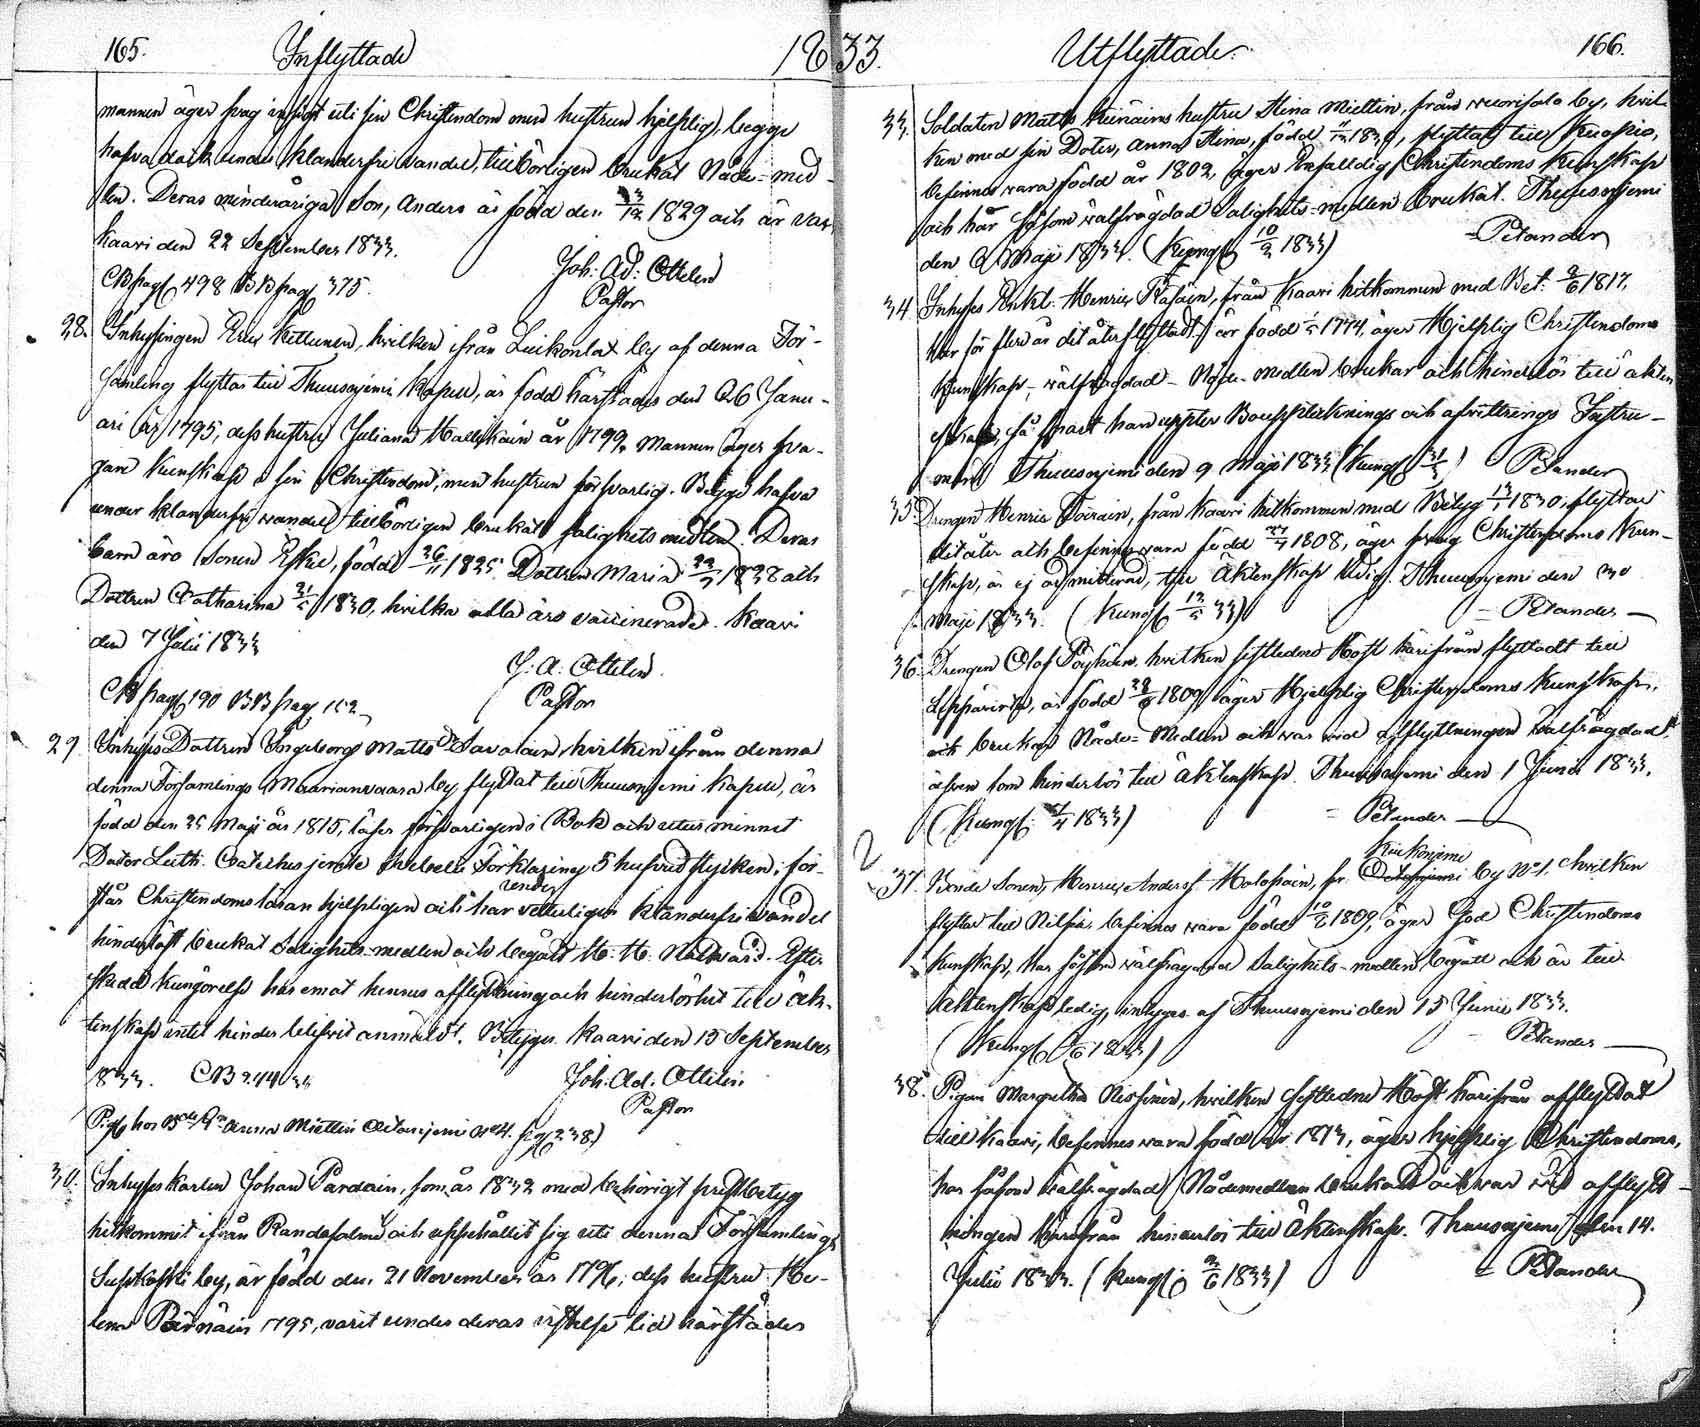 165. Inflyttade 1833.
mannen äger svag insigt uti sin Christendom men hustrun hjelplig, begge
hafva dock under klanderfri vandel, tillbörligen brukat Nåde-med-
len. Deras minderåriga Son, Anders är född den 23/12 1829 och är vac.
Kaavi den 22 September 1833.
Joh: Ad: Ottelin
CB pag 498 BB pag 375.
Pastor
28. Inhysingen Eric Kettunen, hvilken ifrån Luikonlax by af denna För-
samling flyttar till Thuusnjemi Kapell, är född härstädes den 26 Janu-
ari år 1795, dess hustru Juliana Hallikain år 1799. Mannen äger sva-
gare kunskap i sin Christendom, men hustrun försvarlig. Begge hafva
under klanderfri vandel tillbörligen brukat salighets medlen. Deras
barn äro Sonen Eskel, född 26/11 1825, Dottren Maria 22/7 1828 och
Dottren Catharina 21/5 1830, hvilka alla äro vaccinerade. Kaavi
den 7 Julii 1833
J. A. Ottelin.
CB pag 190 BB pag 152
Pastor
29. Inhyses Dottren Ingeborg Matts Dr Savolain, hvilken ifrån denna
denna Församlings Maarianvaara by flyttat till Thuusnjemi Kapell, är
född den 25 Maji år 1815, läser försvarligen i Bok och utur minnet
Dator Luth. Catechus jemte Svebelii Förklaring 5 hufvudstycken; för-
står Christendomsläran hjelpligen och har under vetterligen klanderfri vandel
hinderlöst brukat Salighets-medlen och begått H. H. Nattvard. Efter
skedd kungörelse har emot hennes afflyttning och hinderlöshet till äk-
tenskap intet hinder blifvit anmäldt. Betygas. Kaavi den 15 September
1833. CB 244
Joh. Ad. Ottelin
Pastor
Pig hos Anna Miettin No 4. pag 238.)
30. Inhyseskarlen Johan Pardain, som år 1832 med behörigt prestbetyg
hitkommit ifrån Randasalmi och uppehållit sig uti denna Församlings
by, är född den 21 November år 1796; dess hustru He-
lena Pärnäin 1795, varit under deras vistelse tid härstädes
Utflyttade. 166.
33. Soldaten Matts hustru Stina Miettin, från Vuorisalo by, hvil-
ken med sin Doter, Anna Stina, född 1830, flyttat till Kuopio,
befinnes vara född år 1802, äger Enfalldig Christendoms Kunskap
och har såsom välfrägdad Salighets-medlen brukat. Thuusnjemi
den 2 Maji 1833. (Kungs 10/2 1833)
= Petander
34. Inhyses Enkl: Henric Räsäin, från Kaavi hitkommen med Bet: 2/6 1817,
har för flere år dit återflyttadt, är född 1774, äger Hjelplig Christendoms
Kunskap, välfrägdad Nåde-medlen brukar och hinderlös till äkten
skap, så snart han uppter Bouppteknings och afvittrings Instru-
ment. Thuusnjemi den 9 Maji 1833 (Kungs 31/3) Petander
35. Drengen Henric Toivain, från Kaavi hitkommen med Betyg 13/1 1830, flyttar
dit åter och befinnes vara född 27/7 1808, äger svag Christendoms Kun-
skap, är ej admitterad, till Äktenskap ledig. Thuusnjemi den 30
Maji 1833. (Kungs 12/5 33)
= Petander
36. Drengen Olof Pöyhöin, hvilken sistledne Höst härifrån flyttadt till
Leppävirta, är född 28/9 1809, äger Hjelplig Christendoms Kunskap,
och brukat Nåde-Medlen och var vid afflyttningen välfrägdad,
äfven som hinderlös till Äktenskap. Thuusnjemi den 1 Junii 1833.
(Kungs: 1833)
= Petander
37. Bonde Sonen, Henric Anders: Holopain, fr. Kuikonjemi by No 1. hvilken
flyttar till Nilsiä, befinnes vara född 10/2 1809, äger God Christendoms
kunskap, har såsom välfrägdad Salighets-medlen begått och är till
Äktenskap ledig, intygas af Thuusnjemi den 15 Junii 1833.
(Kungs 1833)
= Petander
38. Pigan Margretha Nissinen, hvilken sistledne Höst härifrån afflyttat
till Kaavi, befinnes vara född år 1813, äger hjelplig Christendoms,
har såsom välfrägdad Nådemedlen brukadt och var vid afflytt-
ningen härifrån hinderlös till Äktenskap. Thuusnjemi den 14.
Julii 1833. (Kungs: 2/6 1833)
= Petander